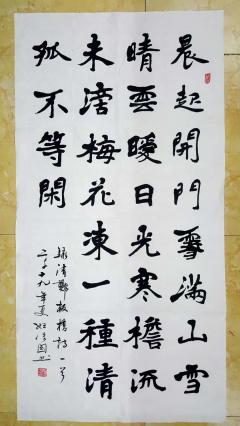 晨起開門雪滿山雪
晴雲暖日光寒檐流
未滴梅花凍一種清
孤不等閑
錄清鄭板橋詩一首
二〇一九年夏